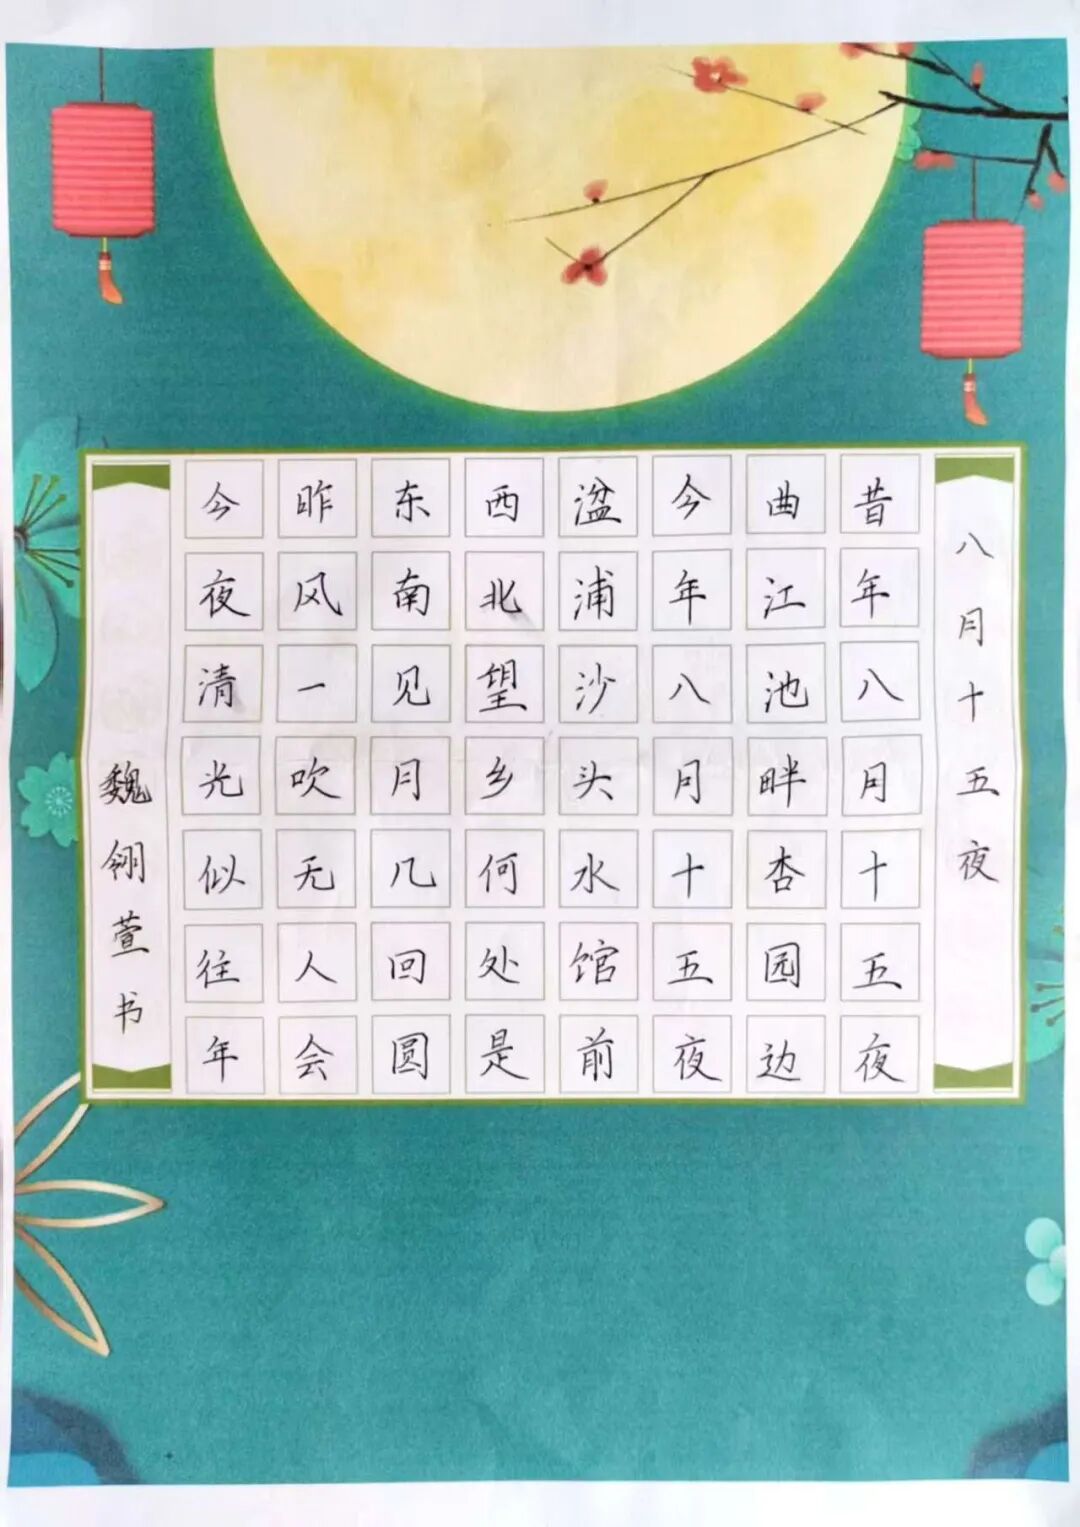 八月十五夜
昔年八月十五夜
曲江池畔杏园边
今年八月十五夜
湓浦沙头水馆前
西北望乡何处是
东南见月几回圆
昨风一吹无人会
今夜清光似往年
魏翎萱书